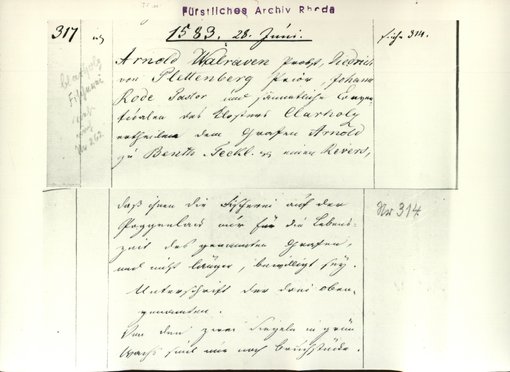 Fürstliches Archiv Rheda
317
1583. 28. Juni.
siehe 314.
Arnold Walraven Probst, Diedrich
von Plettenberg Prior, Johann
Rode Pastor und sämmtliche Conven
tualen des Klosters Clarholz
ertheilen dem Grafen Arnold
zu Benth. Teckl. einen Revers,
Clarholz
Fischerei
Nr 262
daß ihnen die Fischerei auf der
Poggenlais nur für die Lebens-
zeit des genannten Grafen,
und nicht länger, bewilligt sey.
Unterschrift der drei oben-
genannten.
Von den zwei Siegeln in grün
Wachs sind nur noch Bruchstücke.
Nr 314